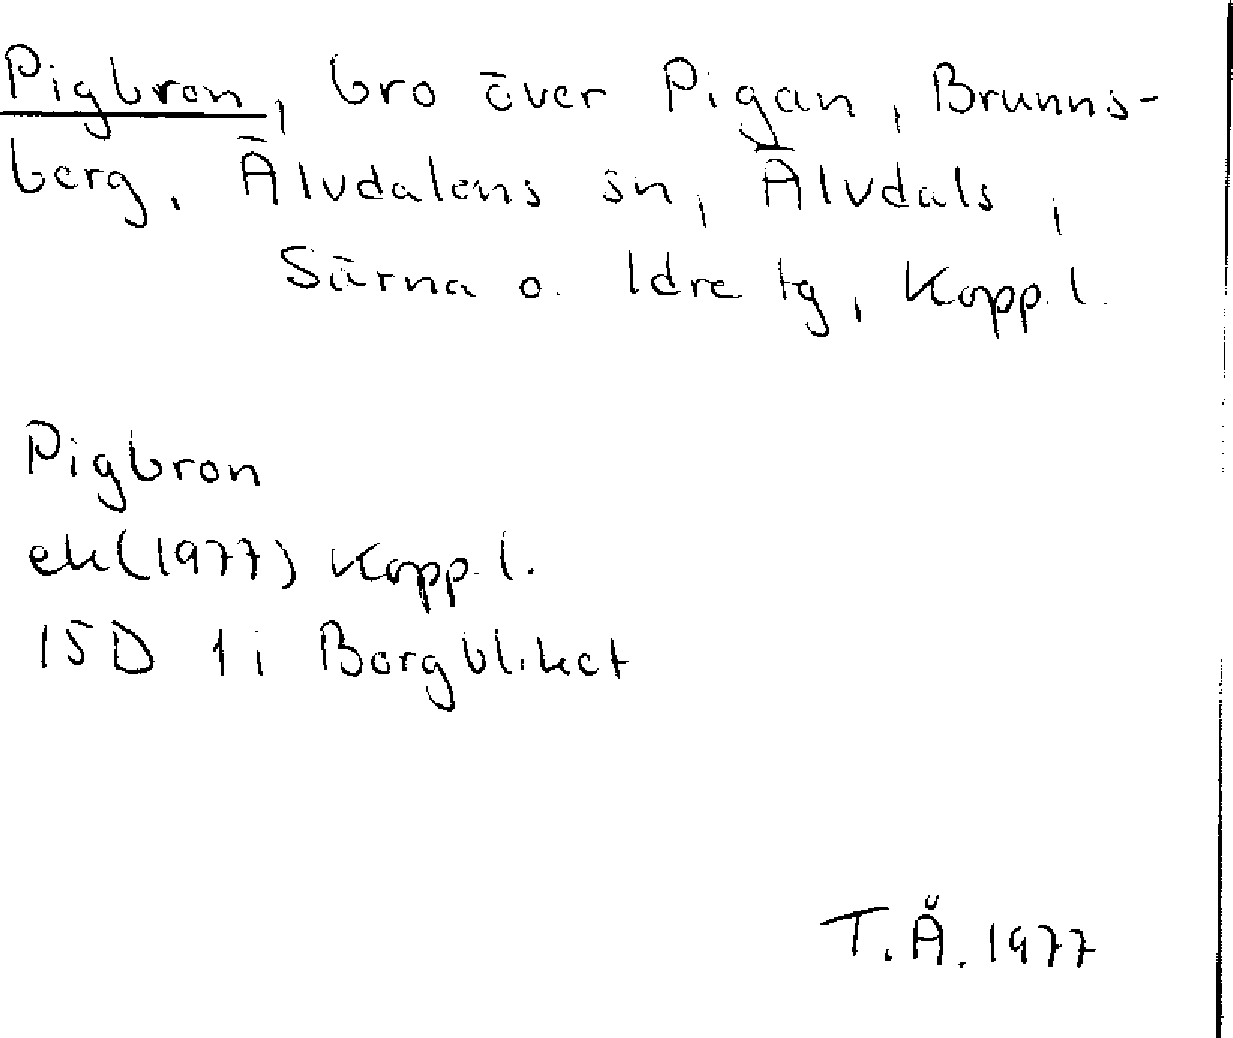 Pigbron, bro över Pigan, Brunns-
berg, Älvdalens sn, Älvdals,
Särna o. Idre tg, Kopp. l.
Pigbron
ek (1977) Kopp. l.
15D 1i Borgbliket
T.Å. 1977